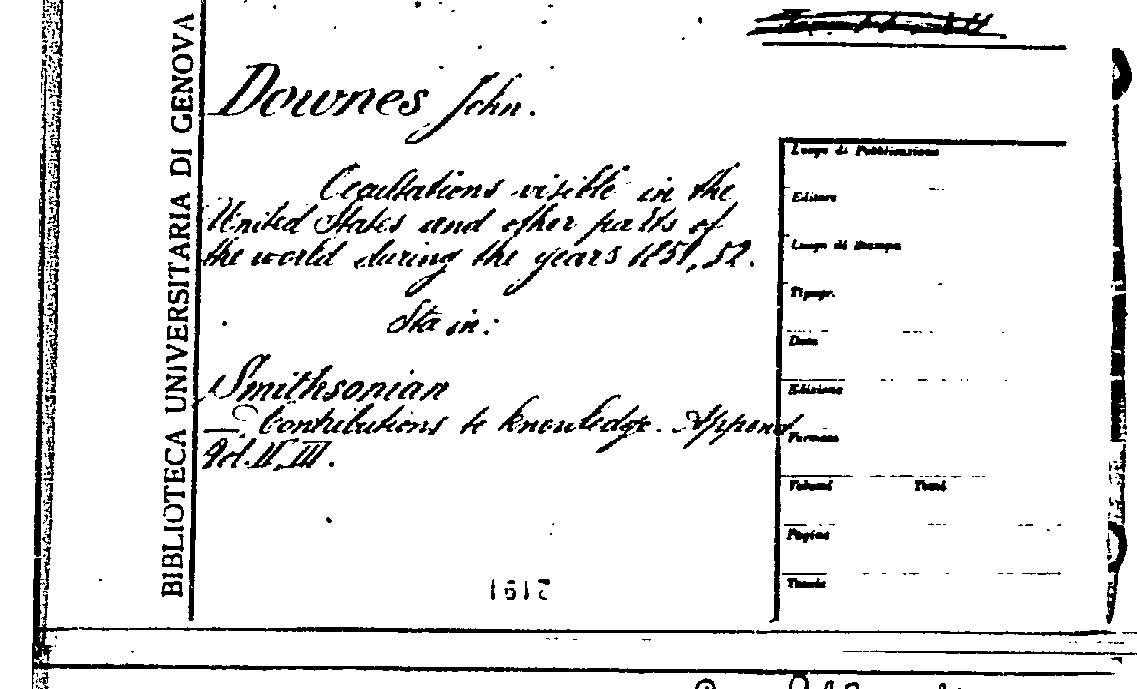 BIBLIOTECA UNIVERSITARIA DI GENOVA
Downes John.
Occultations visible in the
United States and other parts of
the world during the years 1851, 52.
Sta in:
Smithsonian
Contributions to knowledge. Append
Vol. II, III.
Luogo di Pubblicazione
Editore
Luogo di Stampa
Tipogr.
Data
Edizione
Formato
Volumi Tomi
Pagine
Tavole